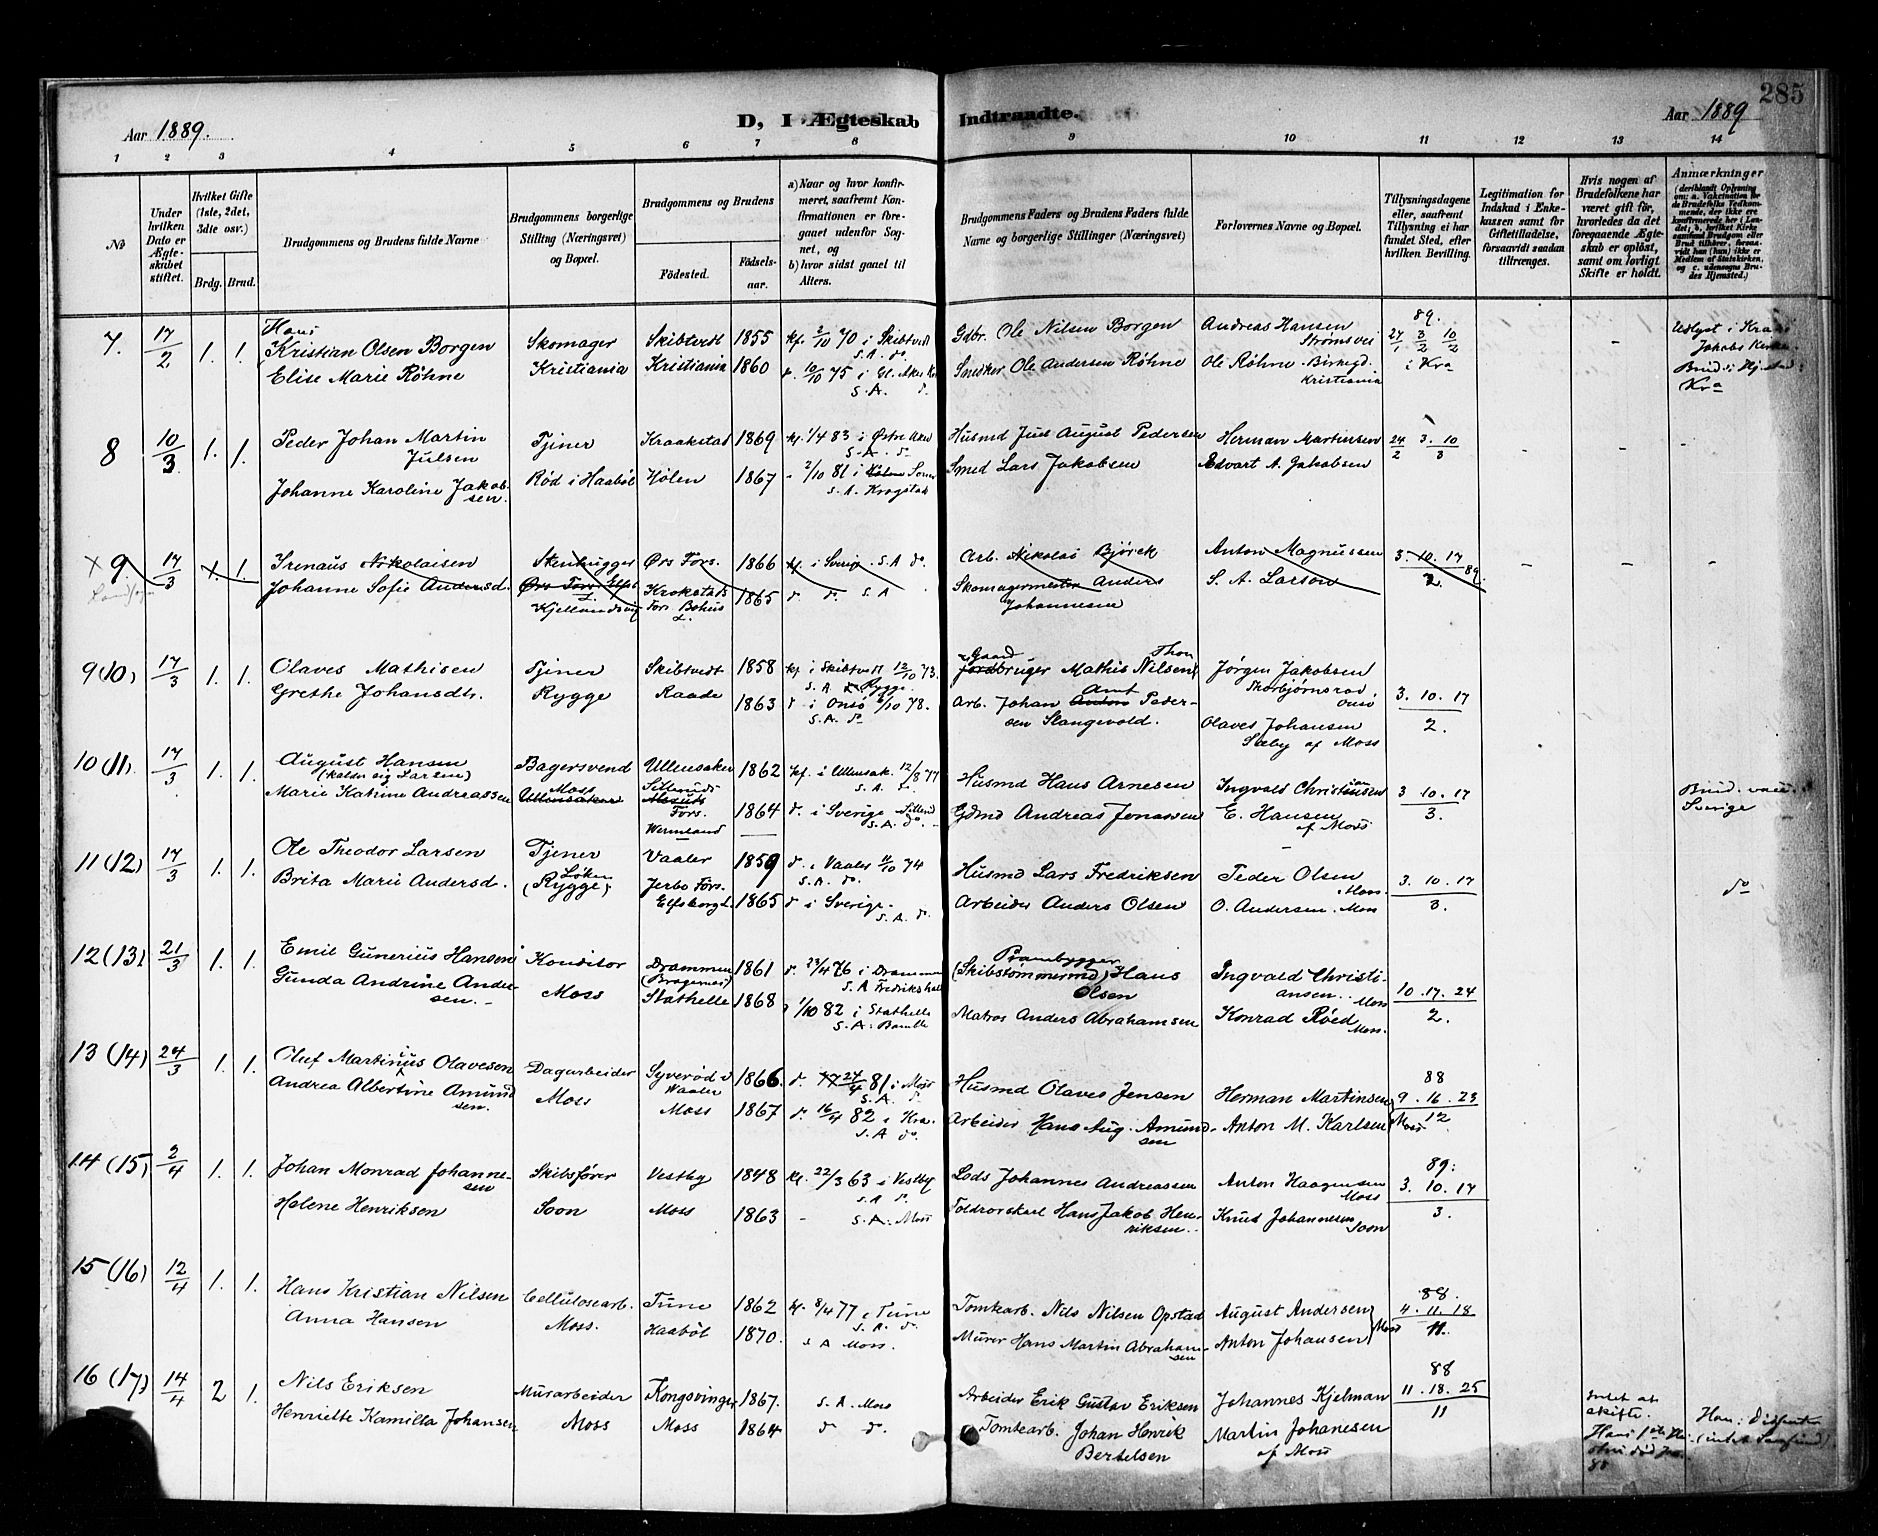 285
Aar 1889.
D, I Ægteskab Indtraadte.
Aar 1889
1 2 3 4 5 6 7 8 9 10 11 12 13 14
No
Under hvilken Dato er Ægteskabet stiftet.
Hvilket Gifte (1ste, 2det, 3die osv.)
Brdg. Brud.
Brudgommens og Brudens fulde Navne
Brudgommens borgerlige Stilling (Næringsvei) og Bopæl.
Brudgommens og Brudens
Fødested.
Fødselsaar.
a) Naar og hvor konfirmeret, saafremt Konfirmationen er foregaaet udenfor Sognet, og
b) hvor sidst gaaet til Alters.
Brudgommens Faders og Brudens Faders fulde Navne og borgerlige Stillinger (Næringsvei)
Forlovernes Navne og Bopæl.
Tillysningsdagene eller, saafremt Tillysning ei har fundet Sted, efter hvilken Bevilling.
Legitimation for Indskud i Enkekassen samt for Giftetilladelse, forsaavidt saadan tiltrænges.
Hvis nogen af Brudefolkene har været gift før, hvorledes da det foregaaende Ægteskab er opløst, samt om lovligt Skifte er holdt.
Anmærkninger
7. 17/2 1. 1. Hans Kristian Olsen Borgen Skomager Skibtvedt 1855 kf. 2/10 70 i Skibtvedt S.A. do. Gdbr. Ole Nilsen Borgen Andreas Hansen Strømsvei 89. 27/1 3/2 10/2
Elise Marie Røhne Kristiania Kristiania 1860 d. 10/10 75 i Gl. Aker S.A. d. Snedker Ole Andersen Røhne Ole Røhne Kristiania i Kra
Udlyst i Kra Jakobs Kirke. Kra
8 10/3 1. 1. Peder Johan Martin Julsen Tjener Kraakstad 1869 kf. 1/4 83 i Østre Aker S.A. do Husmd Juul August Pedersen Herman Martinsen 24/2 3. 10/3
Johanne Karoline Jakobsen. Rød i Haabøl Hølen 1867 - 2/10 81 i S.A. Krogstad Smed Lars Jakobsen Edvart A. Jakobsen
x 9. 17/3 1. 1. Irenäus Nikolaisen Stenhugger Ørs Fors. 1866 kf. i Sverig. S.A. do. Arb. Nikolai Björck Anton Magnussen 3. 10. 17 89.
Johanne Sofie Andersd. Kjellandsvig Krokstads Fors. Bohus L. 1865 d. d. S.A. Skomagermester Anders Johannesen S. A. Larson 2.
9(10) 17/3 1. 1. Olaves Mathisen Tjener Skibtvedt 1858 kf. i Skibtvedt 12/10 73. S.A. Rygge. Gaardbruger Mathis Nilsen Thon Jørgen Jakobsen Thorbjørnsrød. Onsø 3. 10. 17
Grethe Johansdtr. Rygge Raade 1863 d. i Onsø 6/10 78. S.A. do Arb. Johan Amt Pedersen Slangevold. Olaves Johansen Sæby af Moss 2.
10(11). 17/3 1. 1. August Hansen (kalder sig Larsen) Bagersvend Ullensaker 1862 kf. i Ullensak. 12/8 77 S.A. d. Husmd Hans Arnesen Ingvald Christiansen 3 10. 17
Marie Katrine Andreassen Moss Ullensaker Fors. Wermland 1864 d. i Sverige S.A. do. Gdmd Andreas Jonassen E. Hansen af Moss 3.
Brud. Sverige
11(12) 17/3 1. 1. Ole Theodor Larsen Tjener Vaaler 1859 d. i Vaaler 11/10 74 S.A. do. Husmd Lars Fredriksen Peder Olsen Moss. 3. 10. 17
Brita Marie Andersd. Løken (Rygge) Jerbo Førs. Elfsborg L. 1865 d. i Sverige. S.A. d. Arbeider Anders Olsen O. Andersen. Moss 3.
do
12(13) 21/3 1. 1. Emil Gunerius Hansen Konditor Drammen (Bragernes) 1861 d. 23/4 76 i Drammen S.A. Fredrikshald Prambygger (Skibstømmermd) Hans Olsen Ingvald Christiansen. Moss 10. 17. 24
Gunda Andrine Andersen. Moss Stathelle 1868 1/10 82 i Stathelle S.A. Bamble Matros Anders Abrahamsen Konrad Røed Moss. 2.
13(14) 24/3 1. 1. Oluf Martinius Olavesen Dagarbeider Syverød i Vaaler 1866. d. 24/4 81 i Moss S.A. d. Husmd Olaves Jensen Herman Martinsen 88 9. 16. 23
Andrea Albertine Amundsen. Moss Moss 1867 d. 16/4 82 i Kra. S.A. do. Arbeider Hans Aug. Amundsen Anton M. Karlsen Moss 12
14(15) 2/4 1. 1. Johan Monrad Johannesen Skibsfører Vestby 1848 kf. 22/3 63 i Vestby S.A. d. Lods Johannes Andreassen Anton Haagensen Moss 89: 3. 10. 17
Helene Henriksen Soon Moss 1863 - S.A. Moss Toldrorskarl Hans Jakob Henriksen. Knud Johannesen Soon 3.
15(16) 12/4 1. 1. Hans Kristian Nilsen Cellulosearb. Tune 1862 kf. 8/4 77 i Tune S.A. d. Tomtearb. Nils Nilsen Opstad August Andersen 88. 4. 11. 18
Anna Hansen Moss. Haabøl 1870. S A Moss. Murer Hans Martin Abrahamsen Anton Johansen Moss 11.
16(17) 14/4 2 1. Nils Eriksen Murarbeider Kongsvinger 1867. S.A. Moss Arbeider Erik Gustav Eriksen Johannes Kjelman 88 11. 18. 25
Henriette Kamilla Johansen Moss Moss 1864 d d. Tomtearb. Johan Henrik Bertelsen Martin Johanesen af Moss 11
Intet at skifte. 88
Han: Dissenter